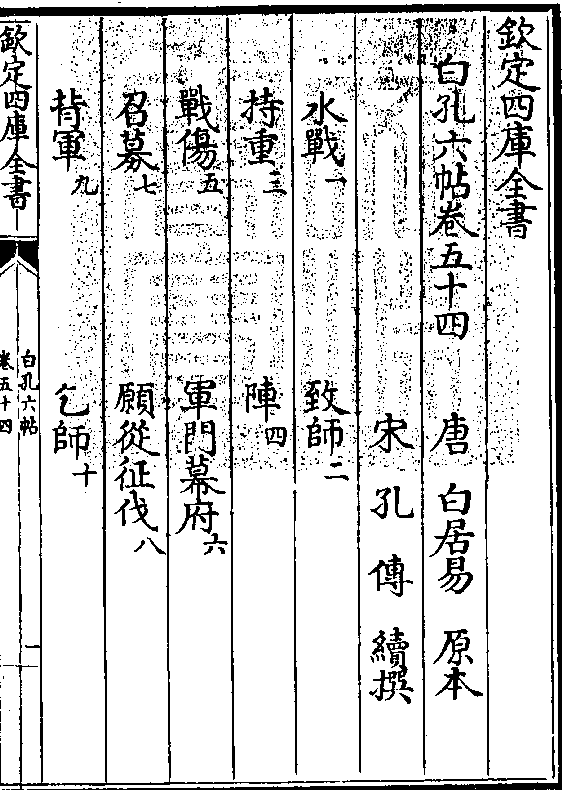 欽定四庫全書
白孔六帖卷五十四 唐 白居易 原本
宋 孔 傳 續撰
水戰一 致師二
持重三 陣四
戰傷五 軍門幕府六
召募七 願從征伐八
背軍九 乞師十
欽定四庫全書
白孔六帖
卷五十四
一